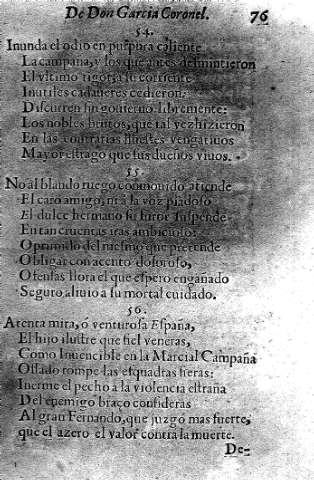 De Don Garcia Coronel. 76
54.
Inunda el odio en purpura caliente
La campaña, y los que antes desmintieron
El vltimo rigor, a su corriente
Inutiles cadaueres cedieron:
Discurren sin gouierno libremente:
Los nobles brutos, que tal vez hizieron
En las contrarias huestes vengatiuos
Mayor estrago que sus dueños viuos.
55
No al blando ruego conmouido atiende
El caro amigo, ni a la voz piadoso
El dulce hermano su furor suspende
En tan cruentas iras ambicioso:
Oprimido del mesmo que pretende
Obligar con acento doloroso,
Ofensas llora el que espero engañado
Seguro aliuio a su mortal cuidado.
56.
Atenta mira, ò venturosa España,
El hijo ilustre que fiel veneras,
Como Inuencible en la Marcial Campaña
Ossado rompe las esquadras fieras:
Inerme el pecho a la violencia estraña
Del enemigo braço consideras
Al gran Fernando, que juzgò mas fuerte,
que el azero el valor contra la muerte.
De-